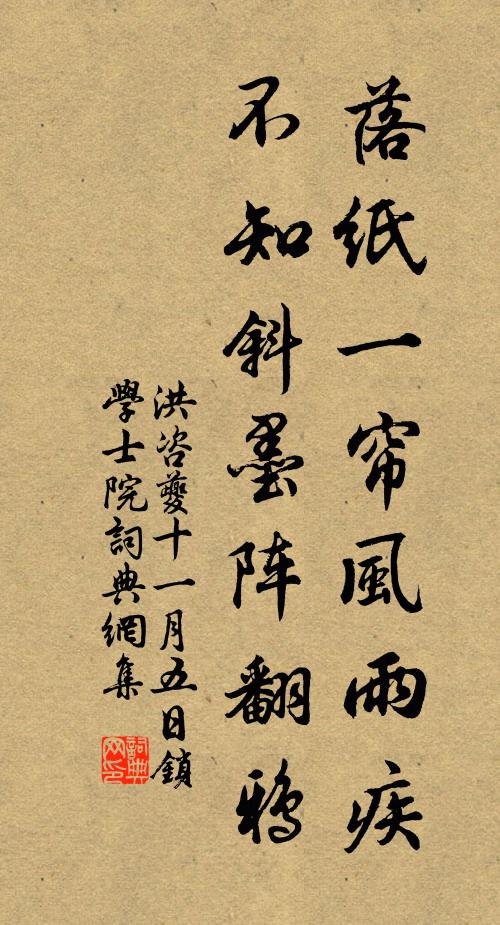 落紙一帘風雨疾
不知斜墨阵翻鸦
洪咨夔十一月五日鎖
學士院詞典網集
詞典
网印